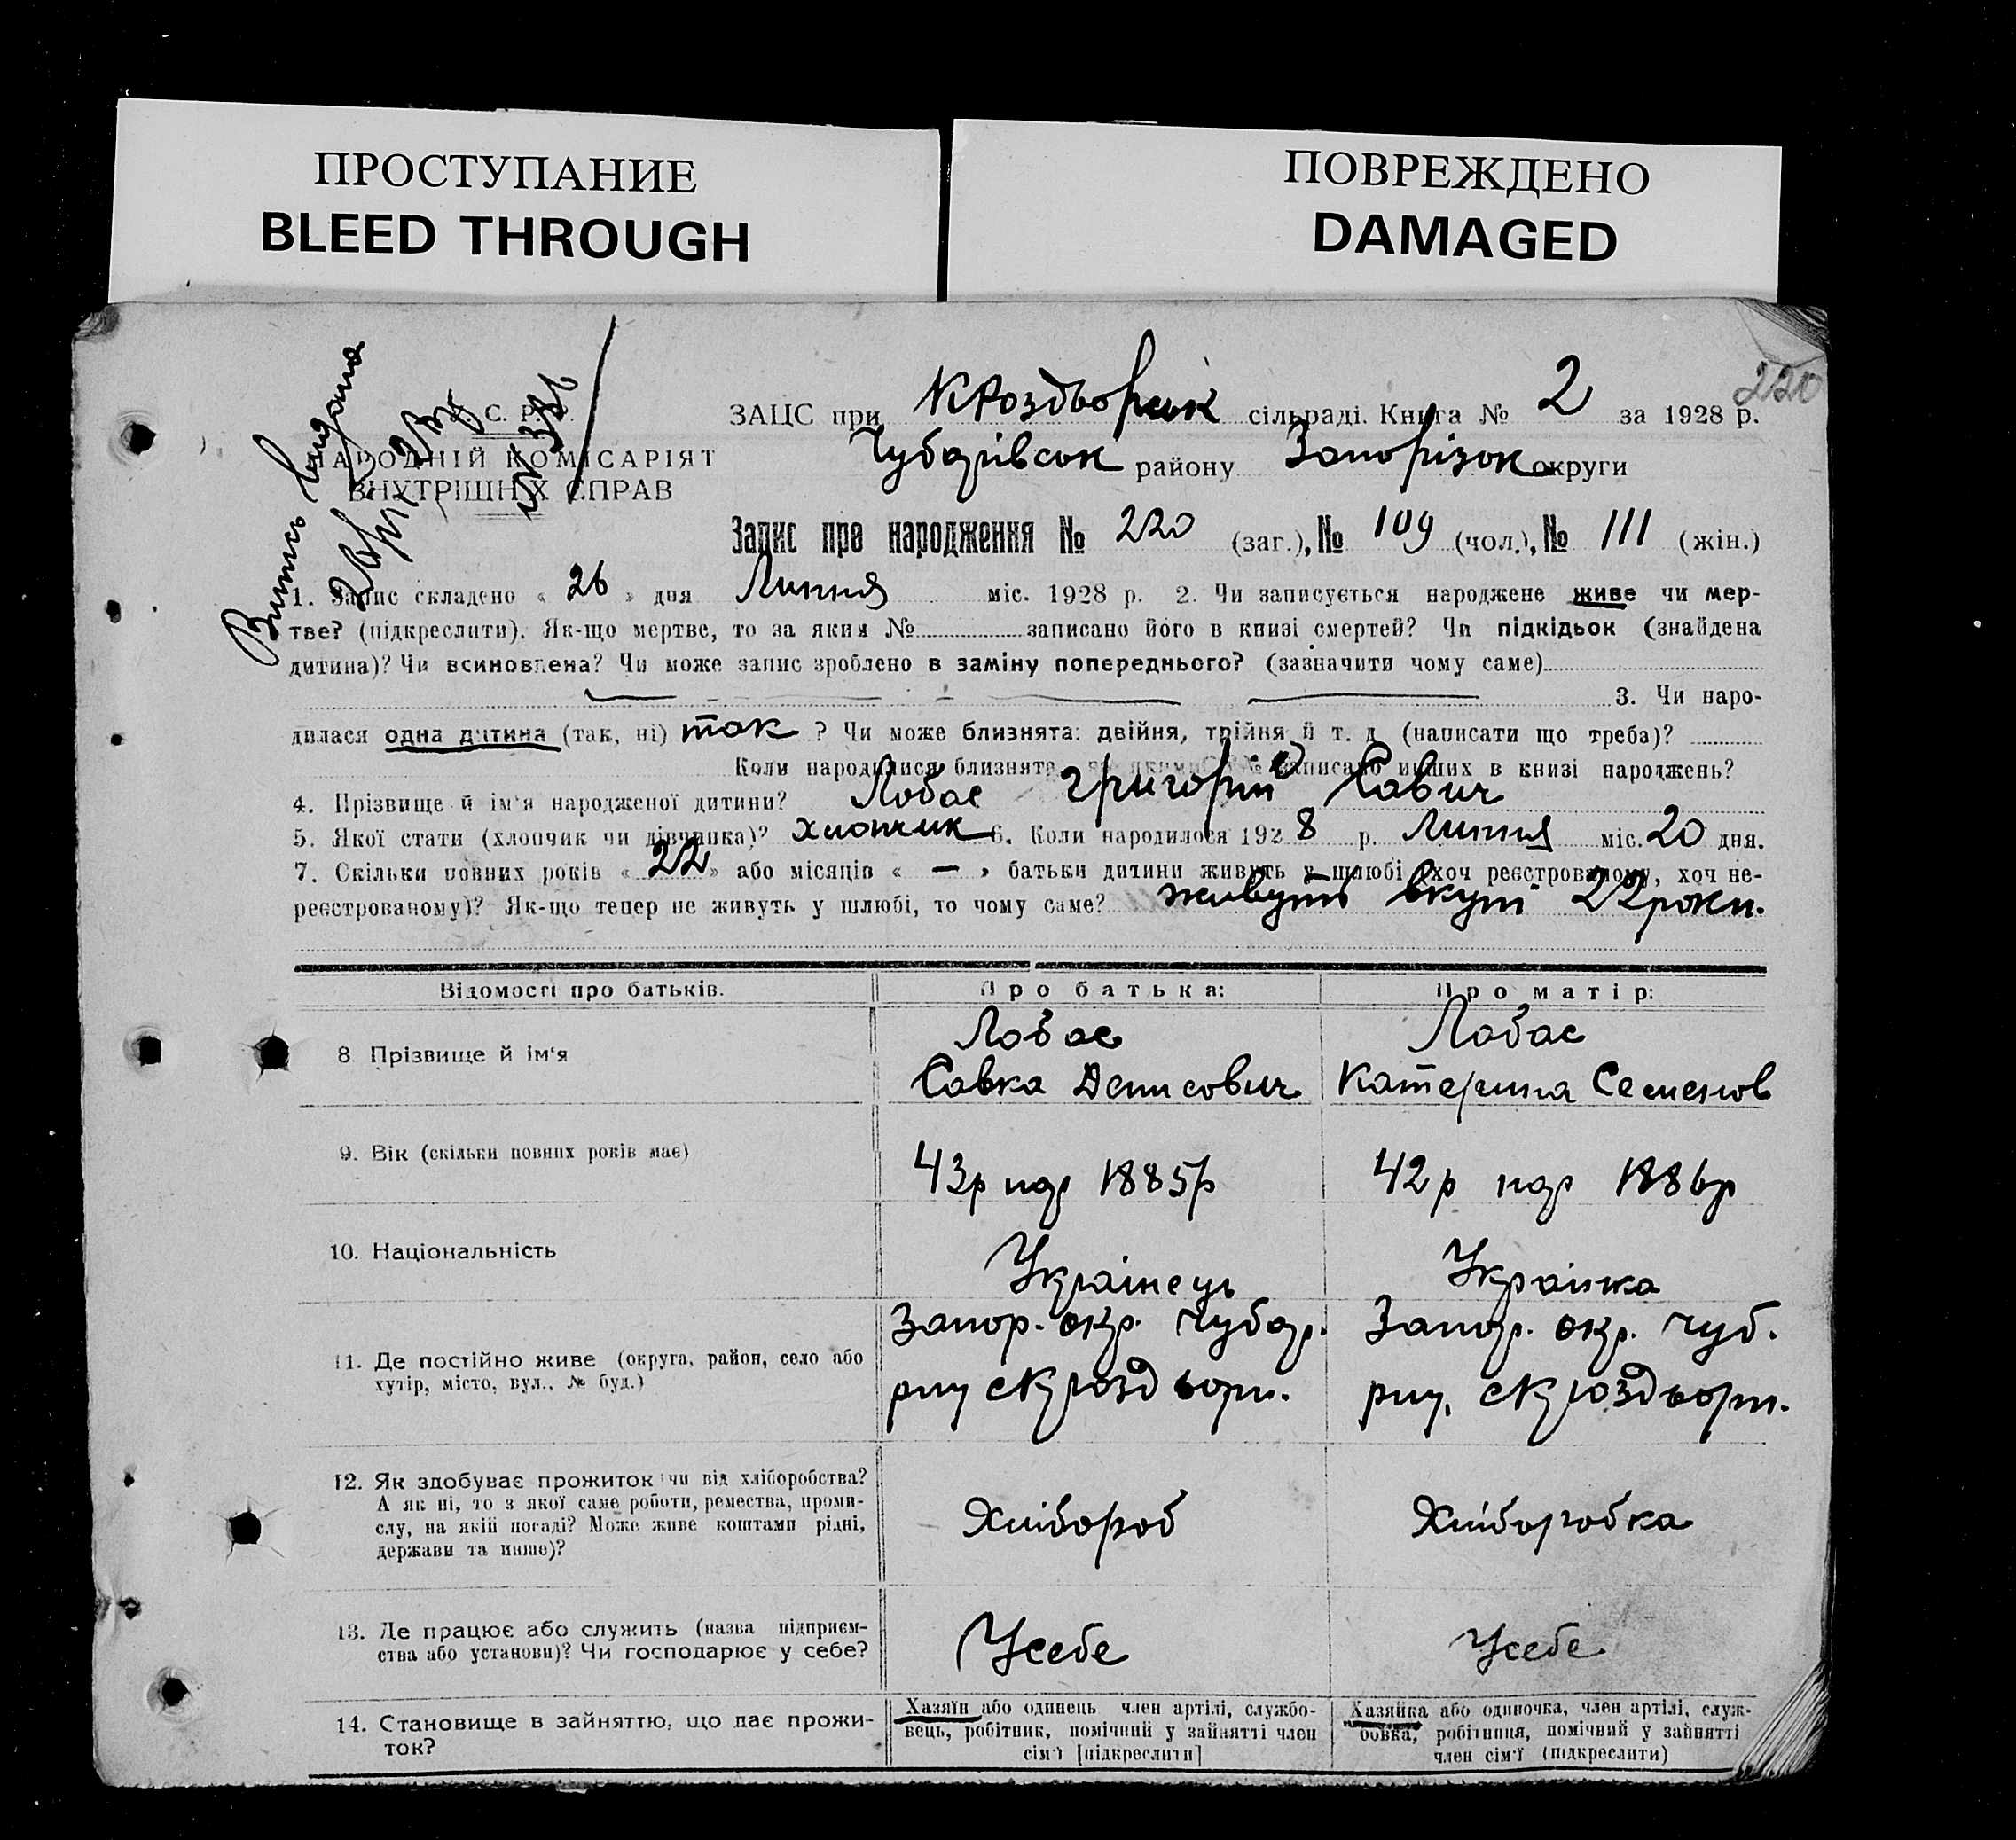 ПРОСТУПАНИЕ
BLEED THROUGH
ПОВРЕЖДЕНО
DAMAGED
220
Витись видана
С. Р.
НАРОДНІЙ КОМІСАРІЯТ
ВНУТРІШНІХ СПРАВ
ЗАЦС при К Роздорськ сільраді. Книга № 2 за 1928 р.
Чубарівськ району Запорізок округи
Запис про народження № 220 (заг.), № 109 (чол.), № 111 (жін.)
1. Запис складено « 26 » дня Липня міс. 1928 р. 2. Чи записується народжене живе чи мер-
тве? (підкреслити). Як-що мертве, то за яким № записано його в книзі смертей? Чи підкідьок (знайдена
дитина)? Чи всиновлена? Чи може запис зроблено в заміну попереднього? (зазначити чому саме)
3. Чи наро-
дилася одна дитина (так, ні) так ? Чи може близнята: двійня, трійня й т. д. (написати що треба)?
Коли народилися близнята, записано инших в книзі народжень?
4. Прізвище й ім'я народженої дитини? Лобас Григорій Савич
5. Якої стати (хлопчик чи дівчинка)? хлопчик 6. Коли народилося 1928 р. Липня міс. 20 дня.
7. Скільки повних років « 22 » або місяців « — » батьки дитини живуть у шлюбі (хоч реєстрованому, хоч не-
реєстрованому)? Як-що тепер не живуть у шлюбі, то чому саме? живуть вкупі 22 роки.
Відомості про батьків. Про батька: Про матір:
8 Прізвище й ім'я Лобас Лобас
Савка Денисович Катерина Семенов
9. Вік (скільки повних років має) 43р нар 1885р 42р нар 1886р
10. Національність Українець Українка
Запор. окр. Чубар. Запор. окр. Чуб.
11. Де постійно живе (округа, район, село або
хутір, місто, вул., № буд.)
12. Як здобуває прожиток чи від хліборобства?
А як ні, то з якої саме роботи, ремества, проми-
слу, на якій посаді? Може живе коштами рідні,
держави та инше)?
Хлібороб Хліборобка
13. Де працює або служить (назва підприєм-
ства або установи)? Чи господарює у себе?
Усебе Усебе
14. Становище в зайняттю, що дає прожи-
ток?
Хазяїн або одинець член артілі, службо-
вець, робітник, помічний у зайнятті член
сім'ї [підкреслити]
Хазяйка або одиночка, член артілі, служ-
бовка, робітниця, помічний у зайнятті
член сім'ї (підкреслити)